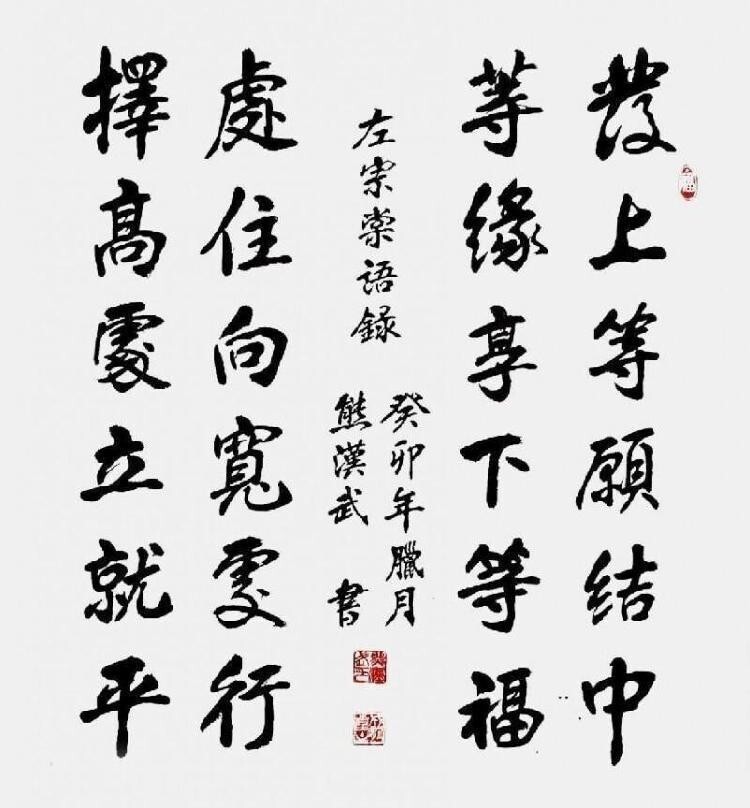 發上等願結中
等緣享下等福
擇高處立就平
處住向寬處行
左宗棠語錄
癸卯年臘月
熊漢武書